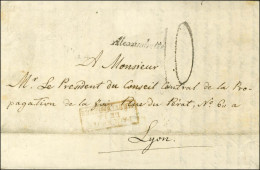 Alexandrie
10
A Monsieur
Mr. Le President du Conseil Central de la Pro-
pagation de la foi Rue du Pérat, No 6 a
Lyon.